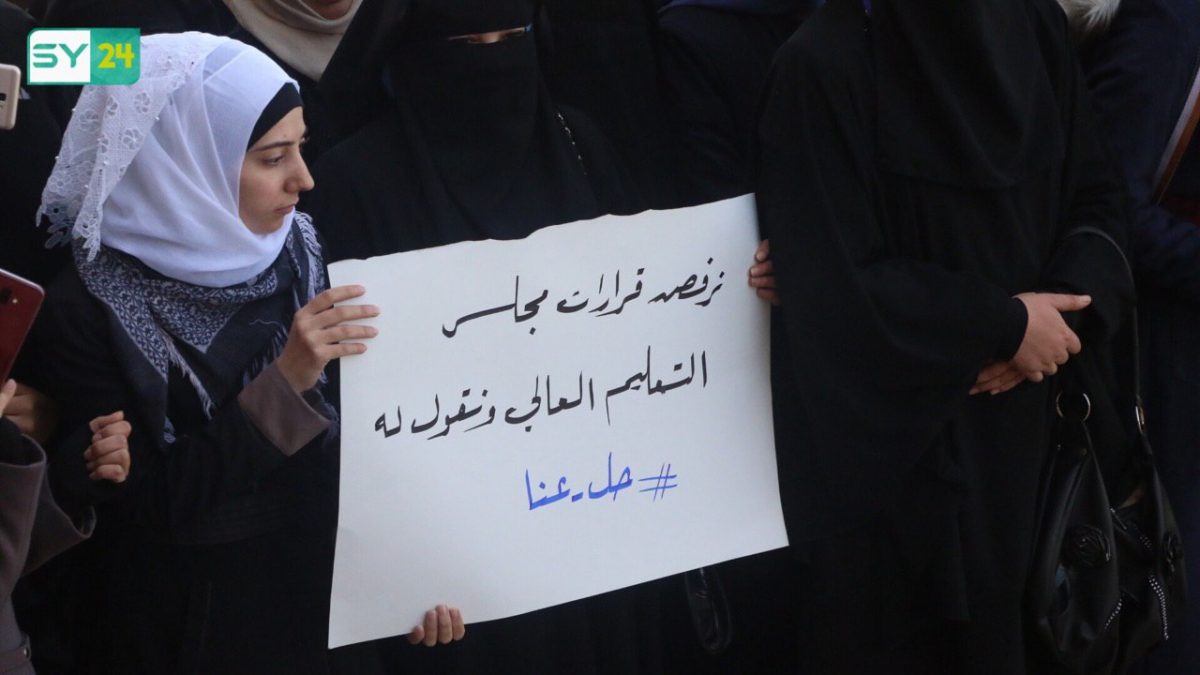 SY 24
نرفض قرارات مجلس
التعليم العالي ونقول له
#حل_عنا